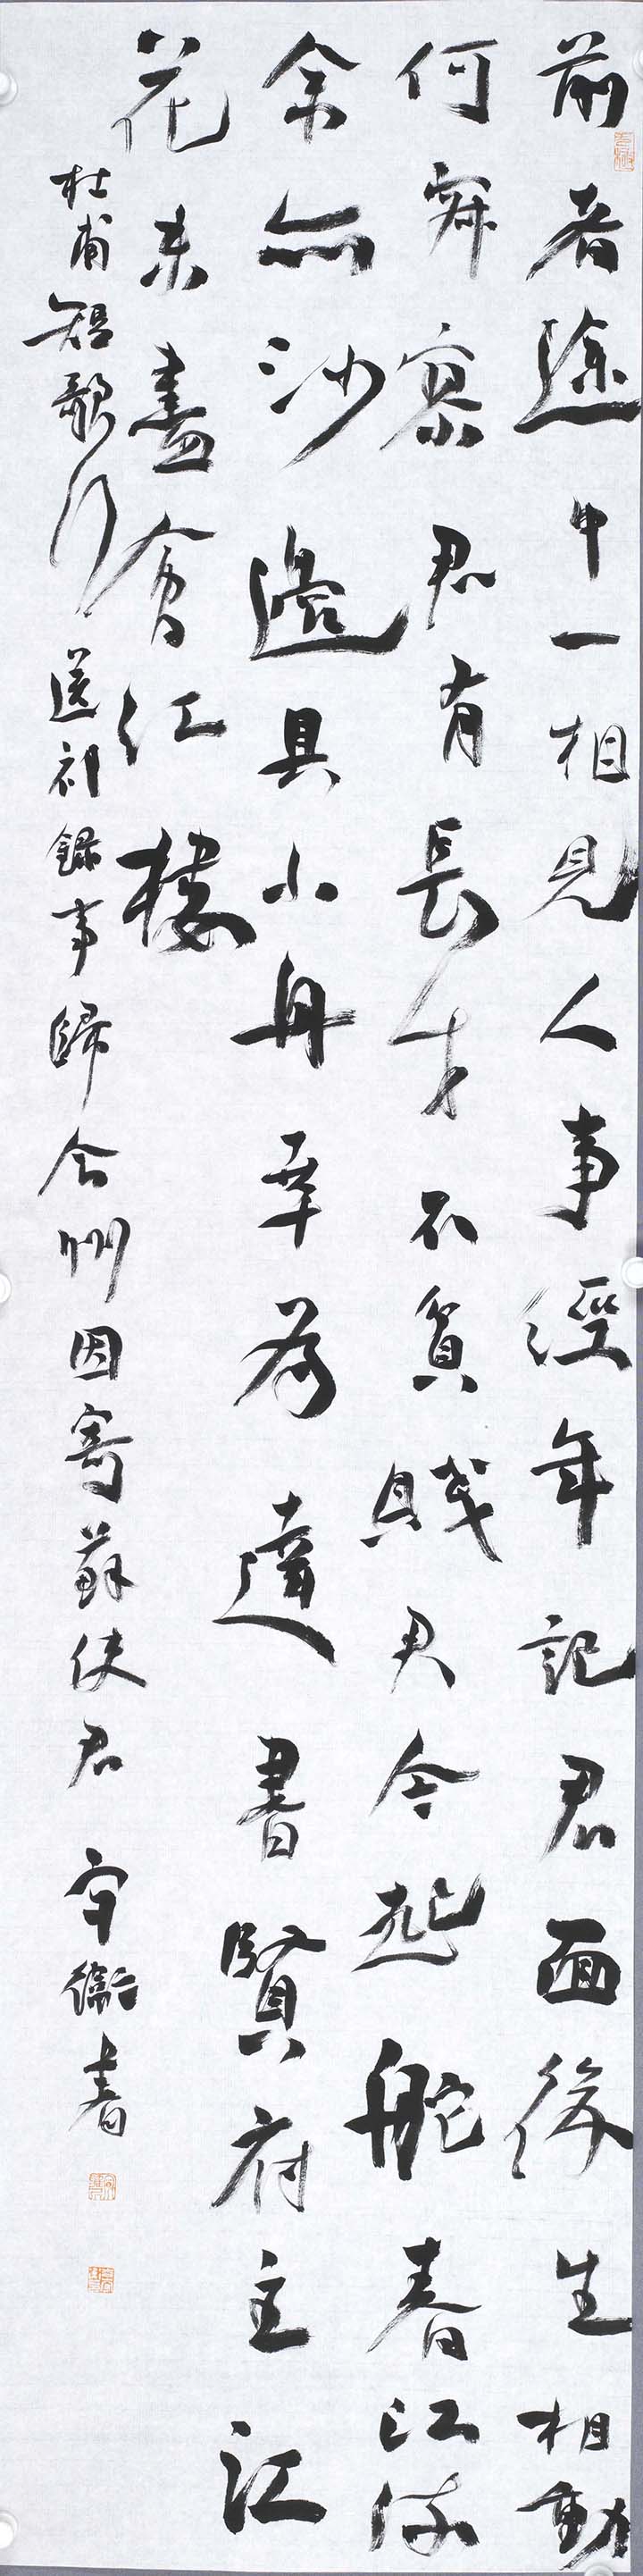 前者途中一相見人事經年記君面後生相動
何寂寥君有長才不貧賤君今起舵春江流
余亦沙邊具小舟幸為達書賢府主江
花未盡會江樓
杜甫短歌行送祁錄事歸合州因寄蘇使君 書